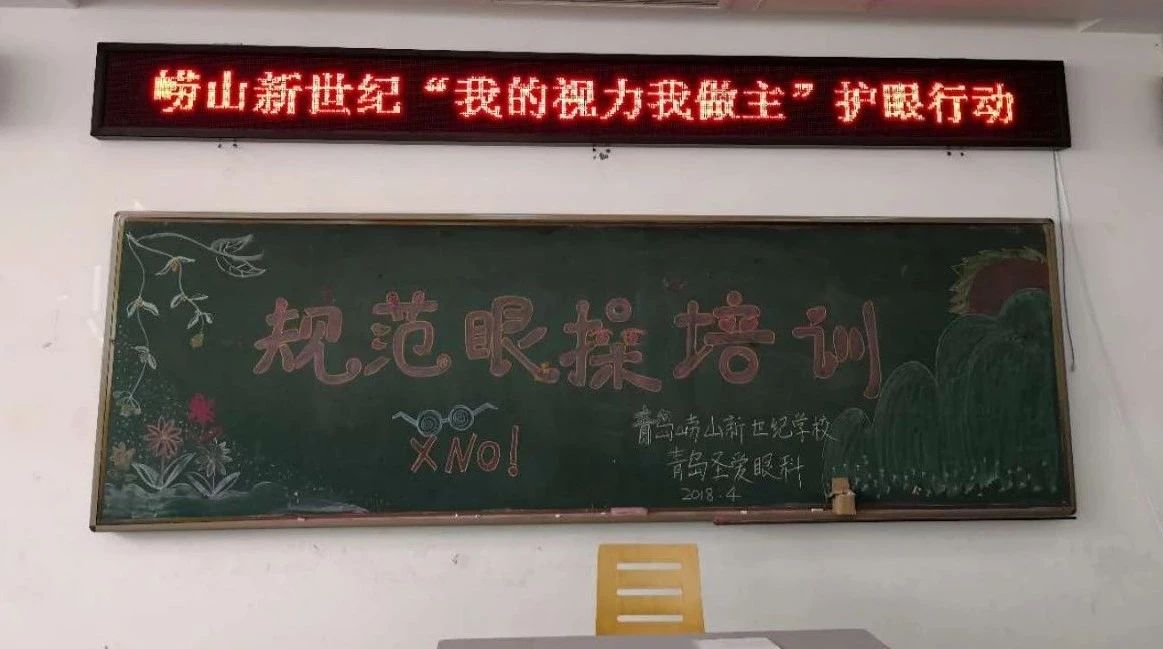 崂山新世纪“我的视力我做主”护眼行动
规范眼操培训
XNO!
青岛崂山新世纪学校
青岛圣爱眼科
2018.4